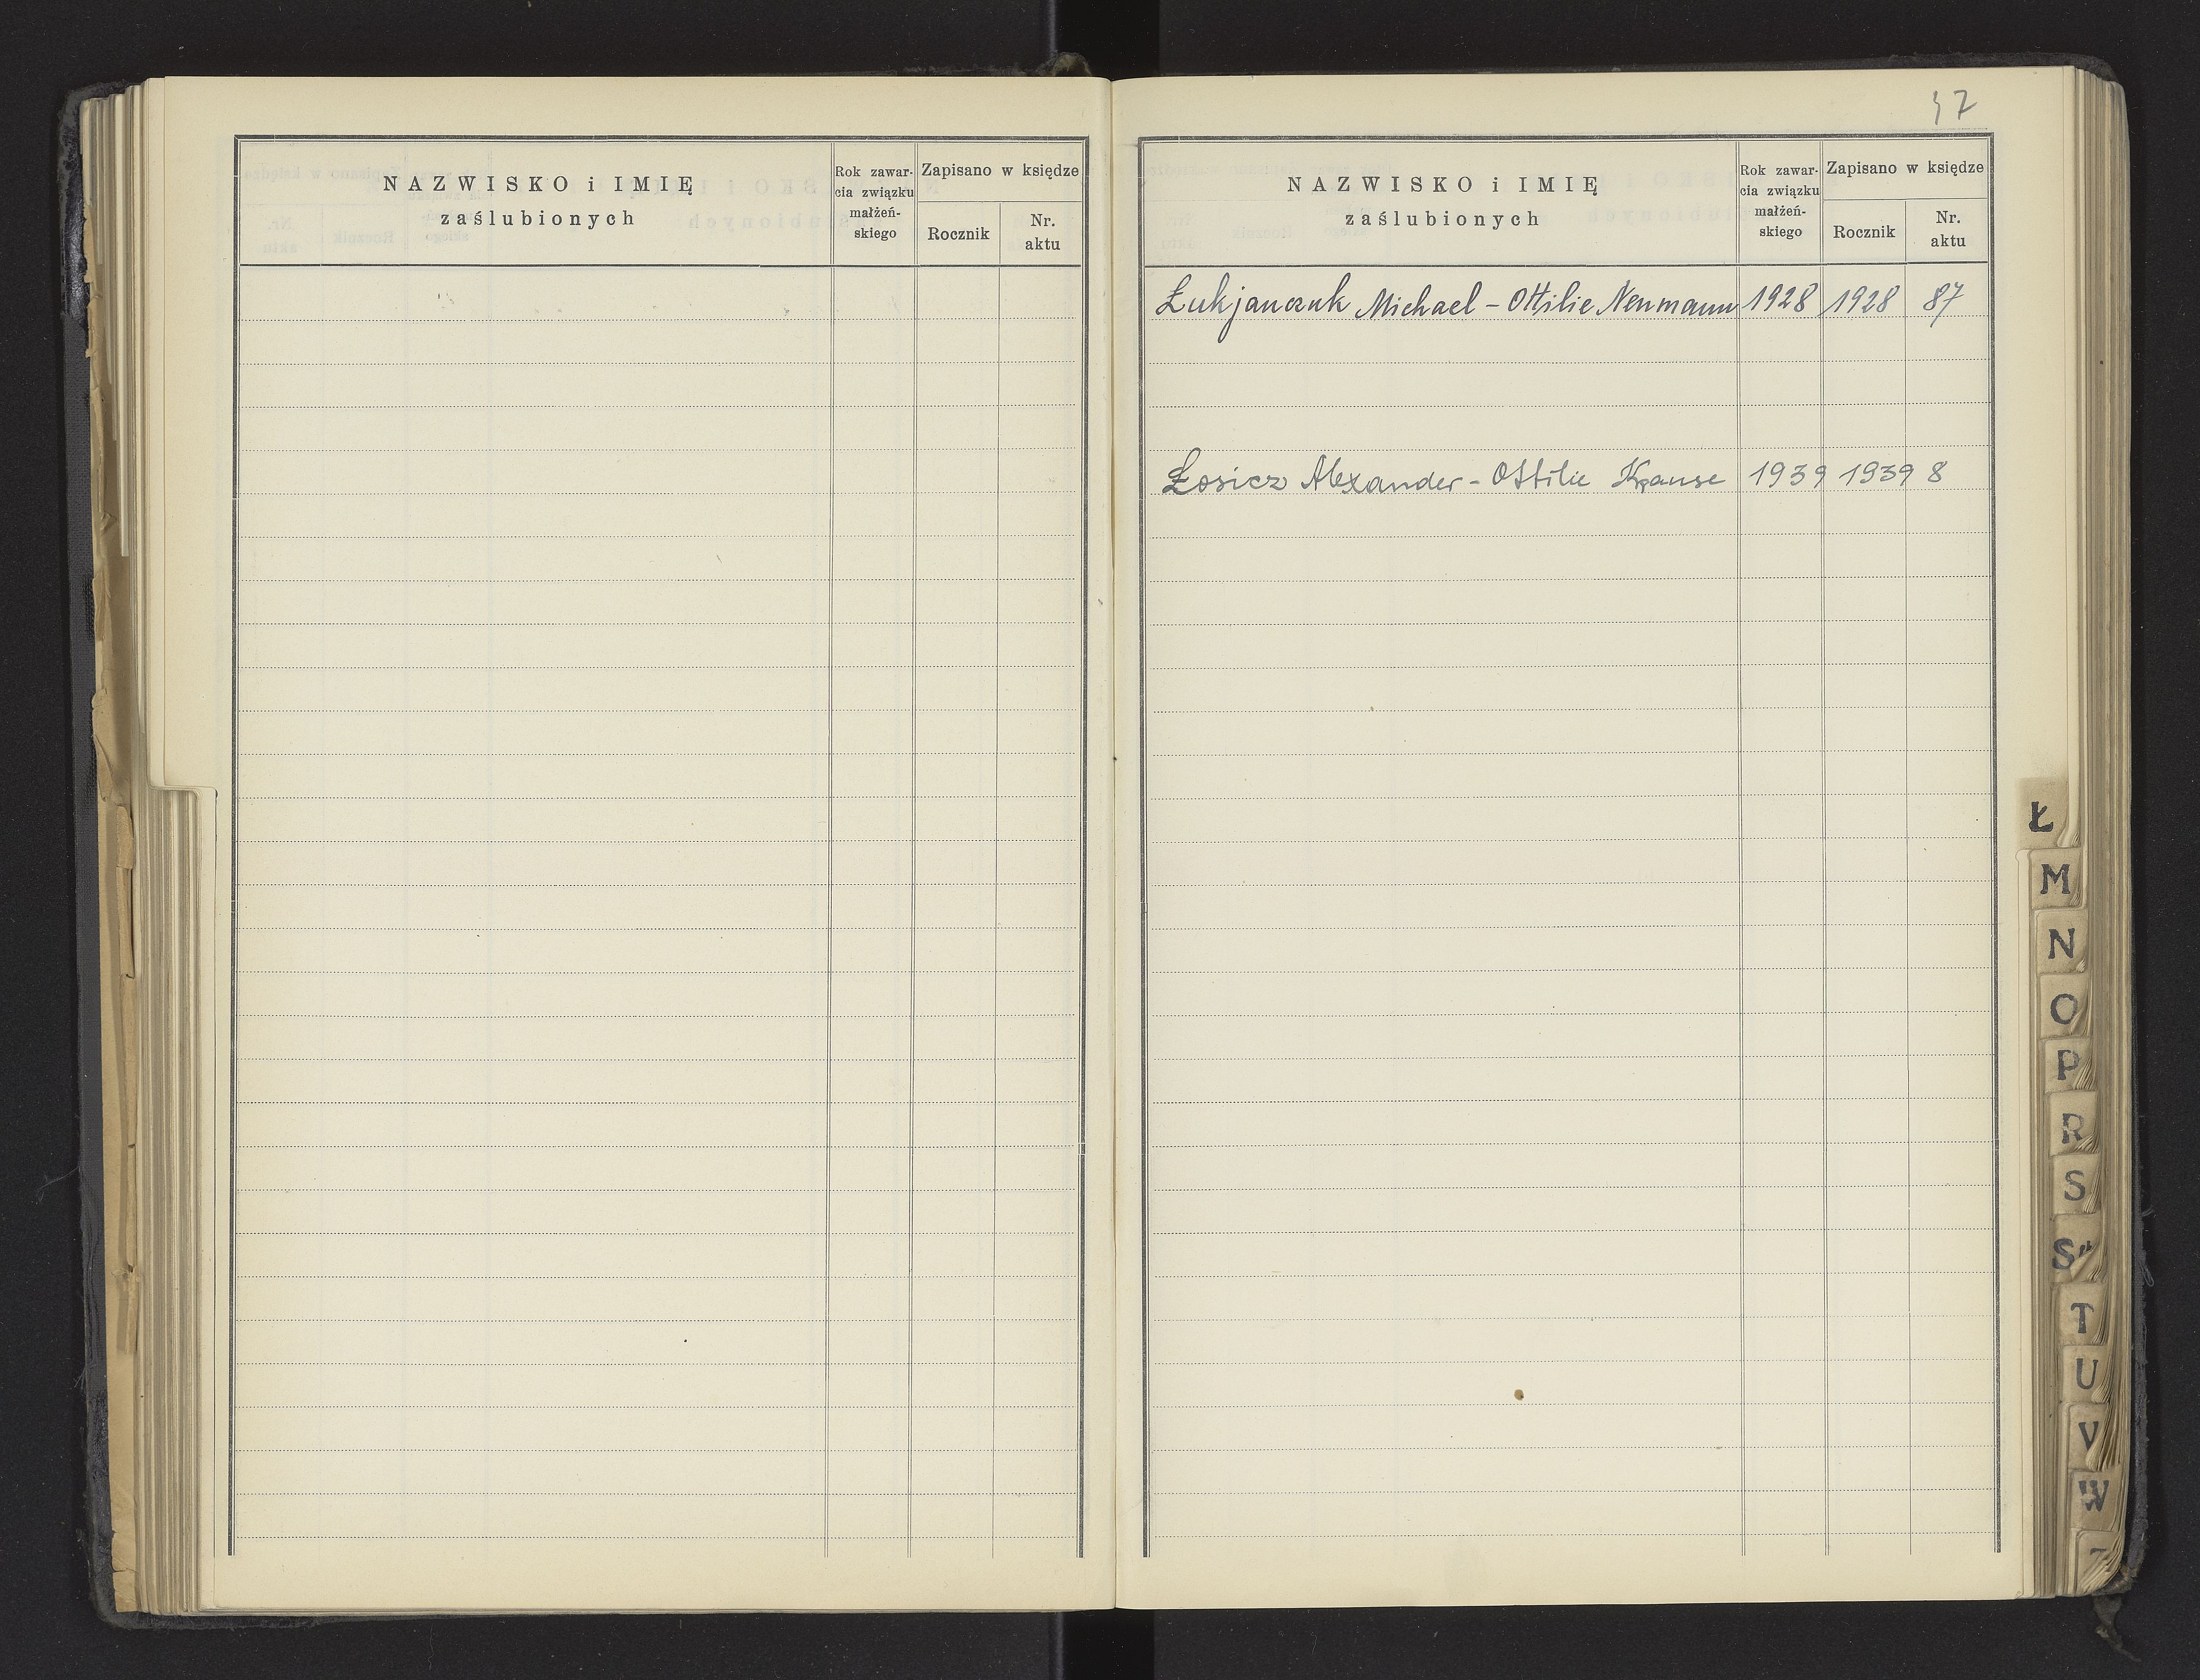 NAZWISKO i IMIĘ
zaślubionych
Rok zawar-
cia związku
małżeń-
skiego
Zapisano w księdze
Rocznik
Nr.
aktu
37
NAZWISKO i IMIĘ
zaślubionych
Rok zawar-
cia związku
małżeń-
skiego
Zapisano w księdze
Rocznik
Nr.
aktu
Łukjanczuk Michael - Ottilie Neumann 1928 1928 87
Łosicz Alexander - Ottilie Krause 1939 1939 8
Ł
M
N
O
P
R
S
T
U
V
W